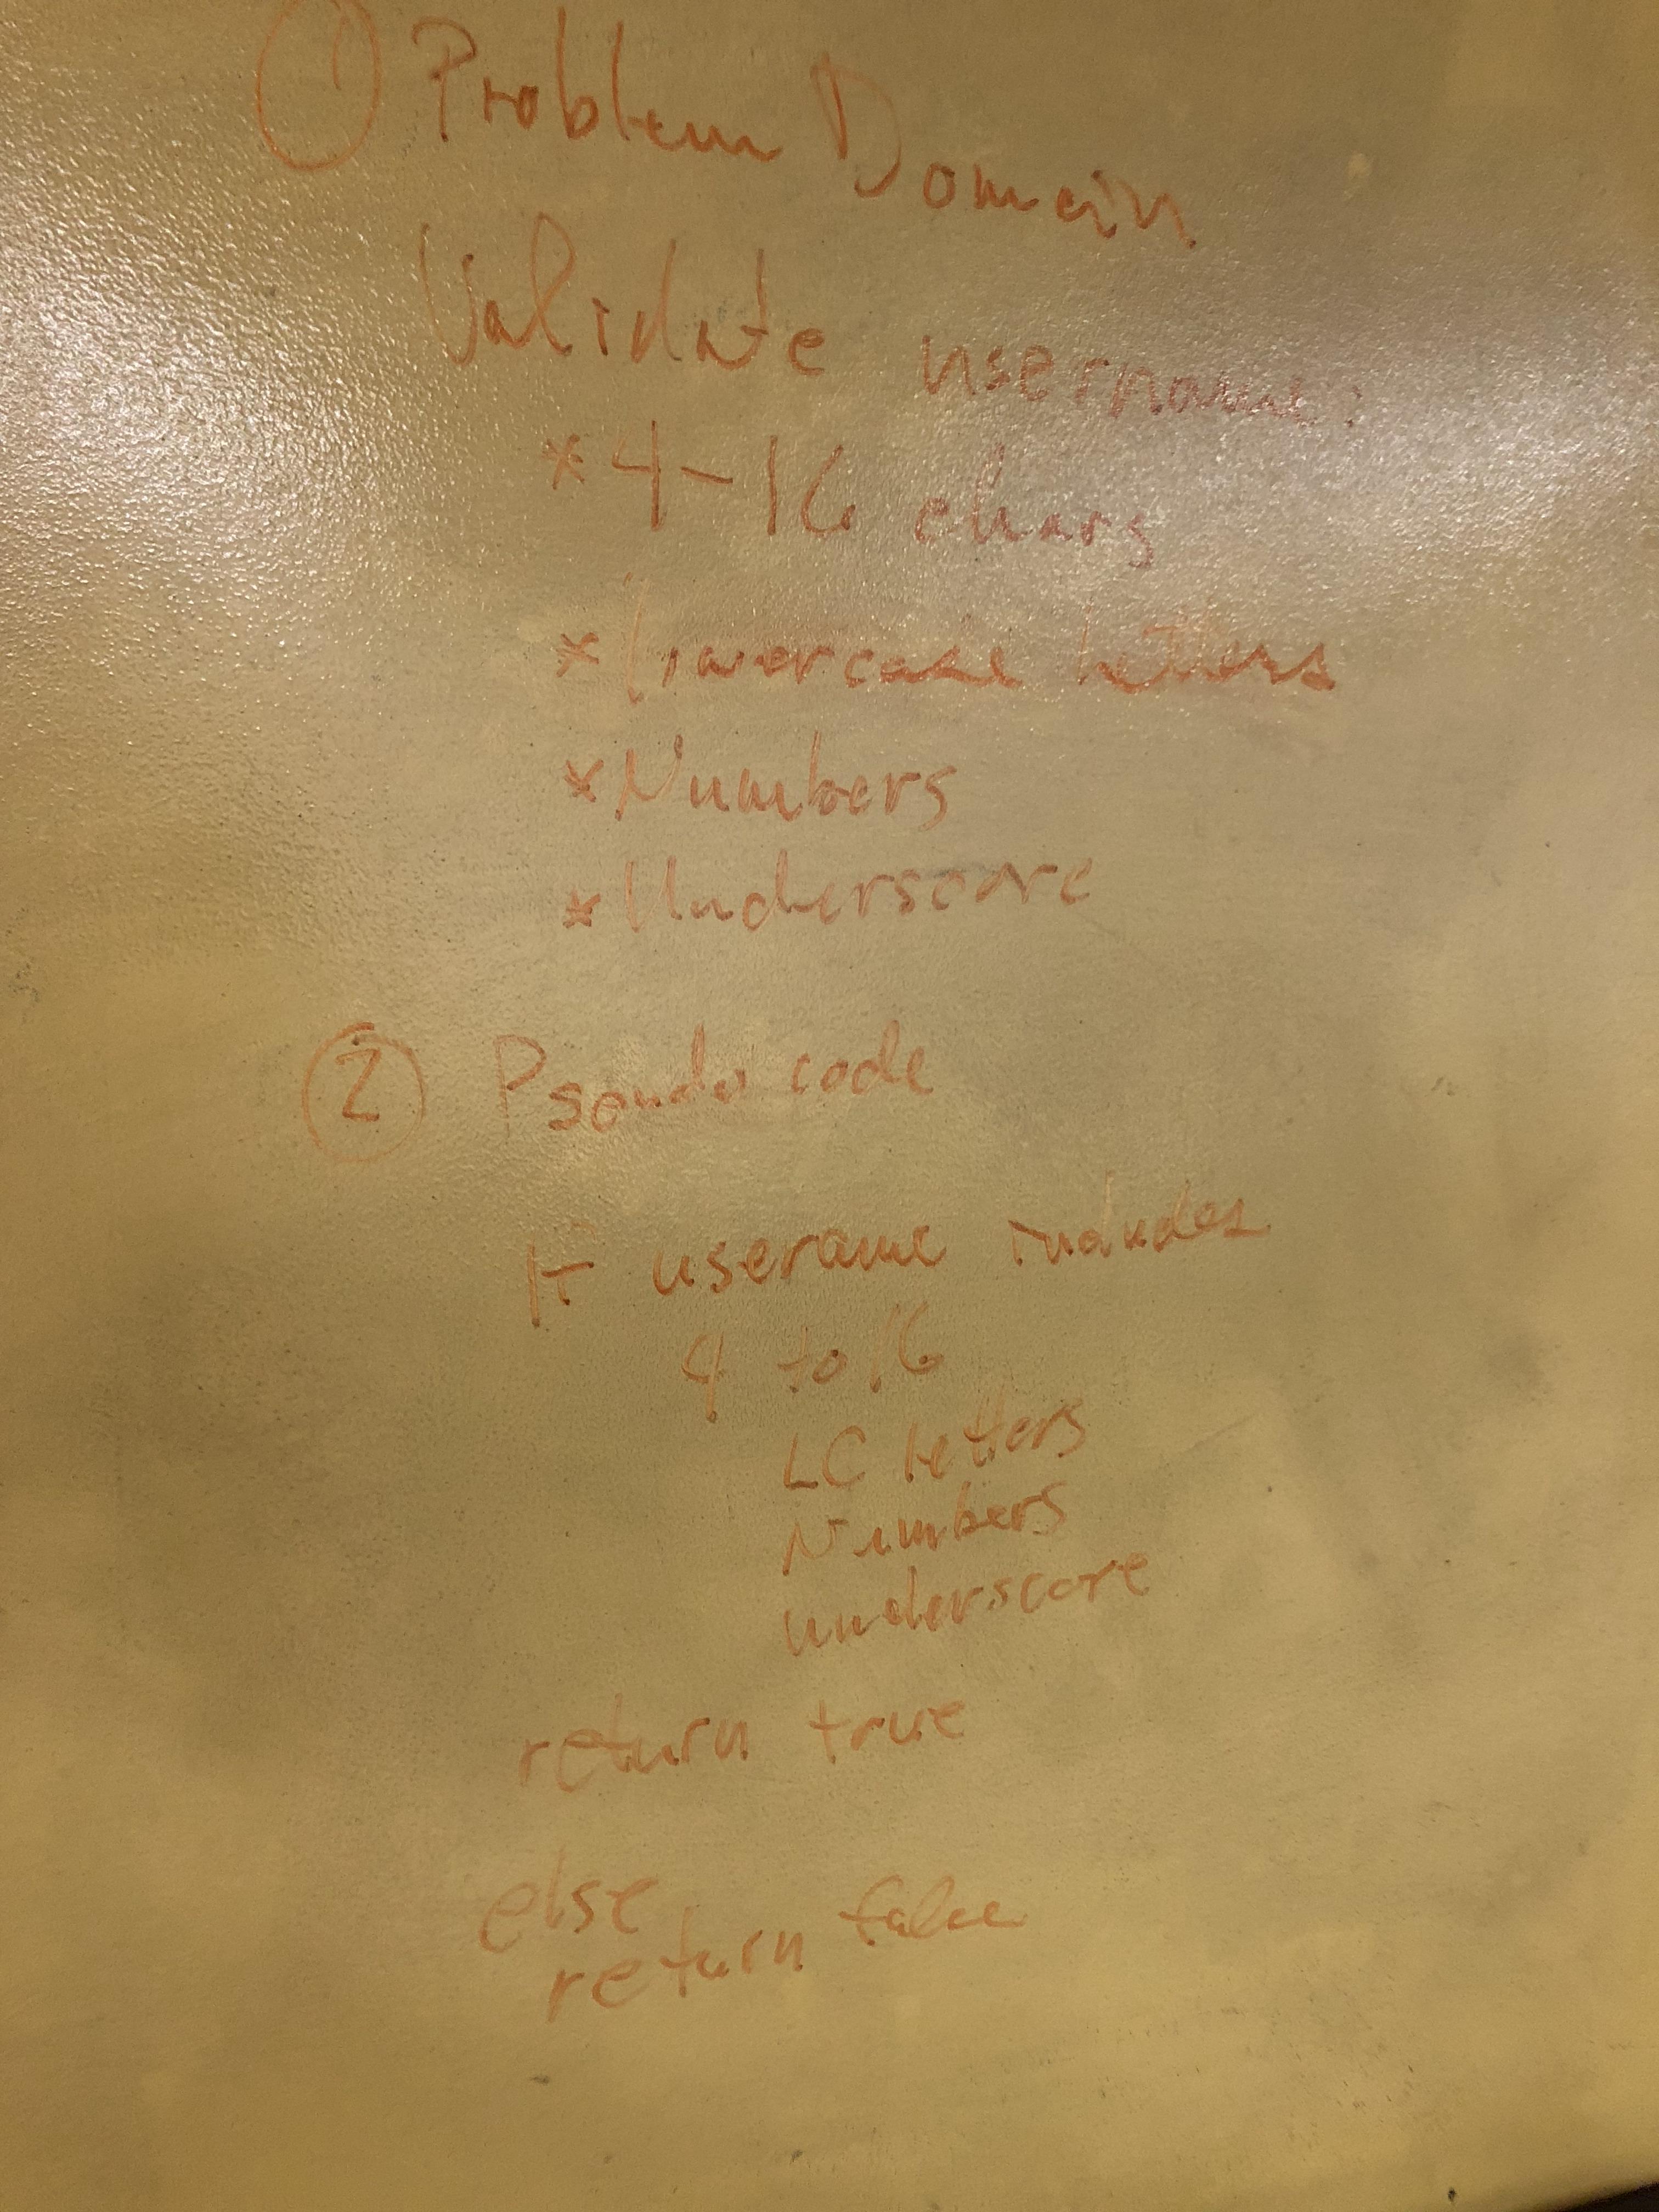 ① Problem Domain
Validate username:
* 4-16 chars
* lowercase letters
* Numbers
* Underscore
② Psoudo code
If userame includes
4 to 16
LC letters
Numbers
underscore
return true
else
return false